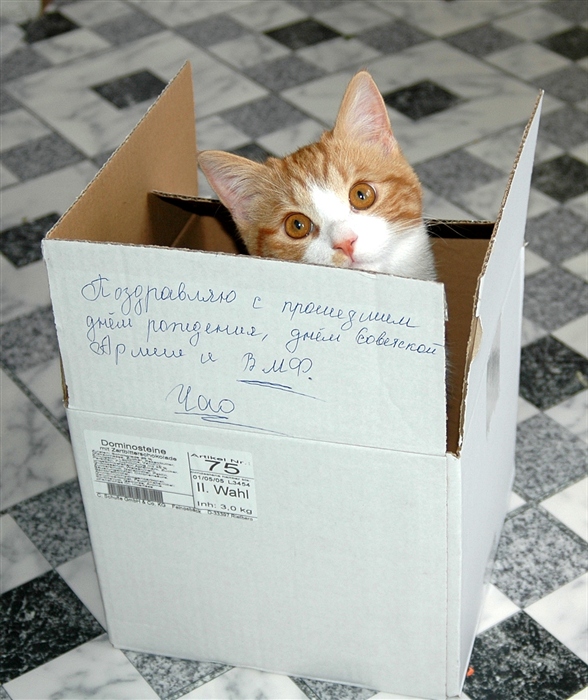 Поздравляю с прошедшим
днём рождения, днём Советской
Армии и ВМФ.
Чао
Dominosteine
mit Zartbitterschokolade
Artikel Nr
75
01/05/05 L3454
II. Wahl
Inh: 3,0 kg